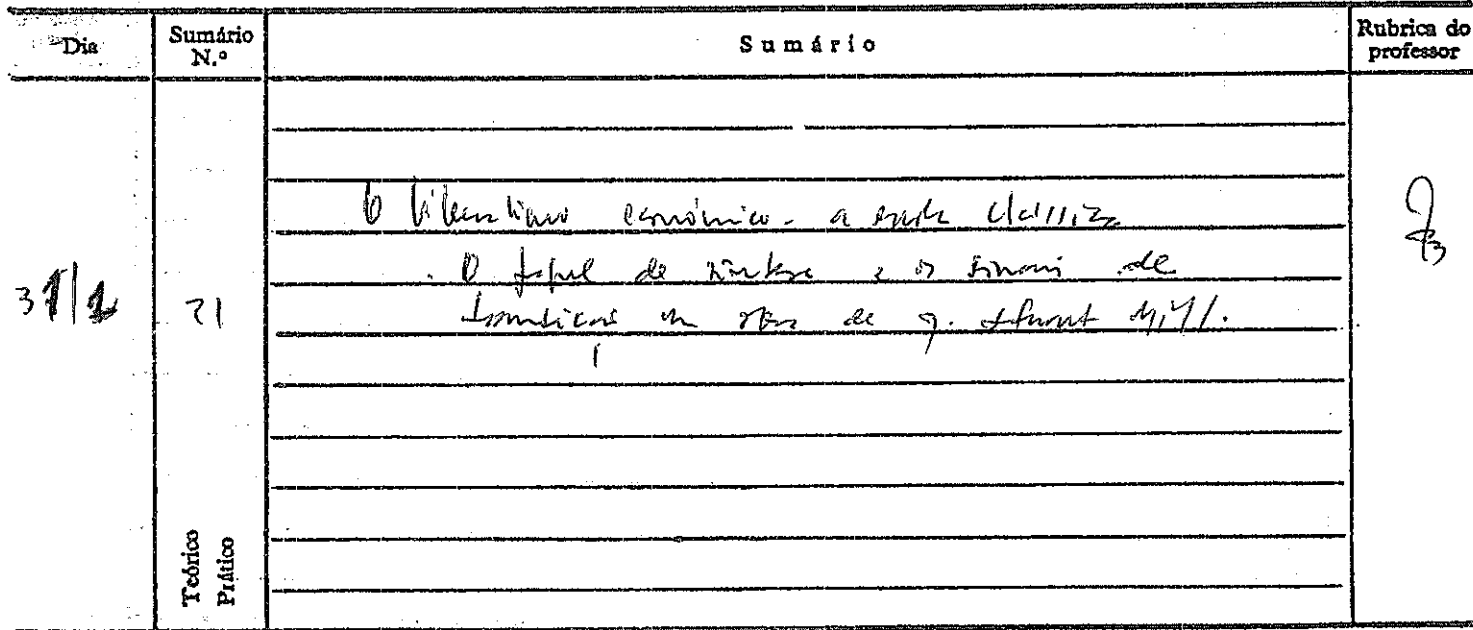 Dia
Sumário N.º
Sumário
Rubrica do professor
31/1
21
O liberalismo económico - a escola clássica
. O papel de síntese e os sinais de
transição na obra de J. Stuart Mill.
Teórico
Prático